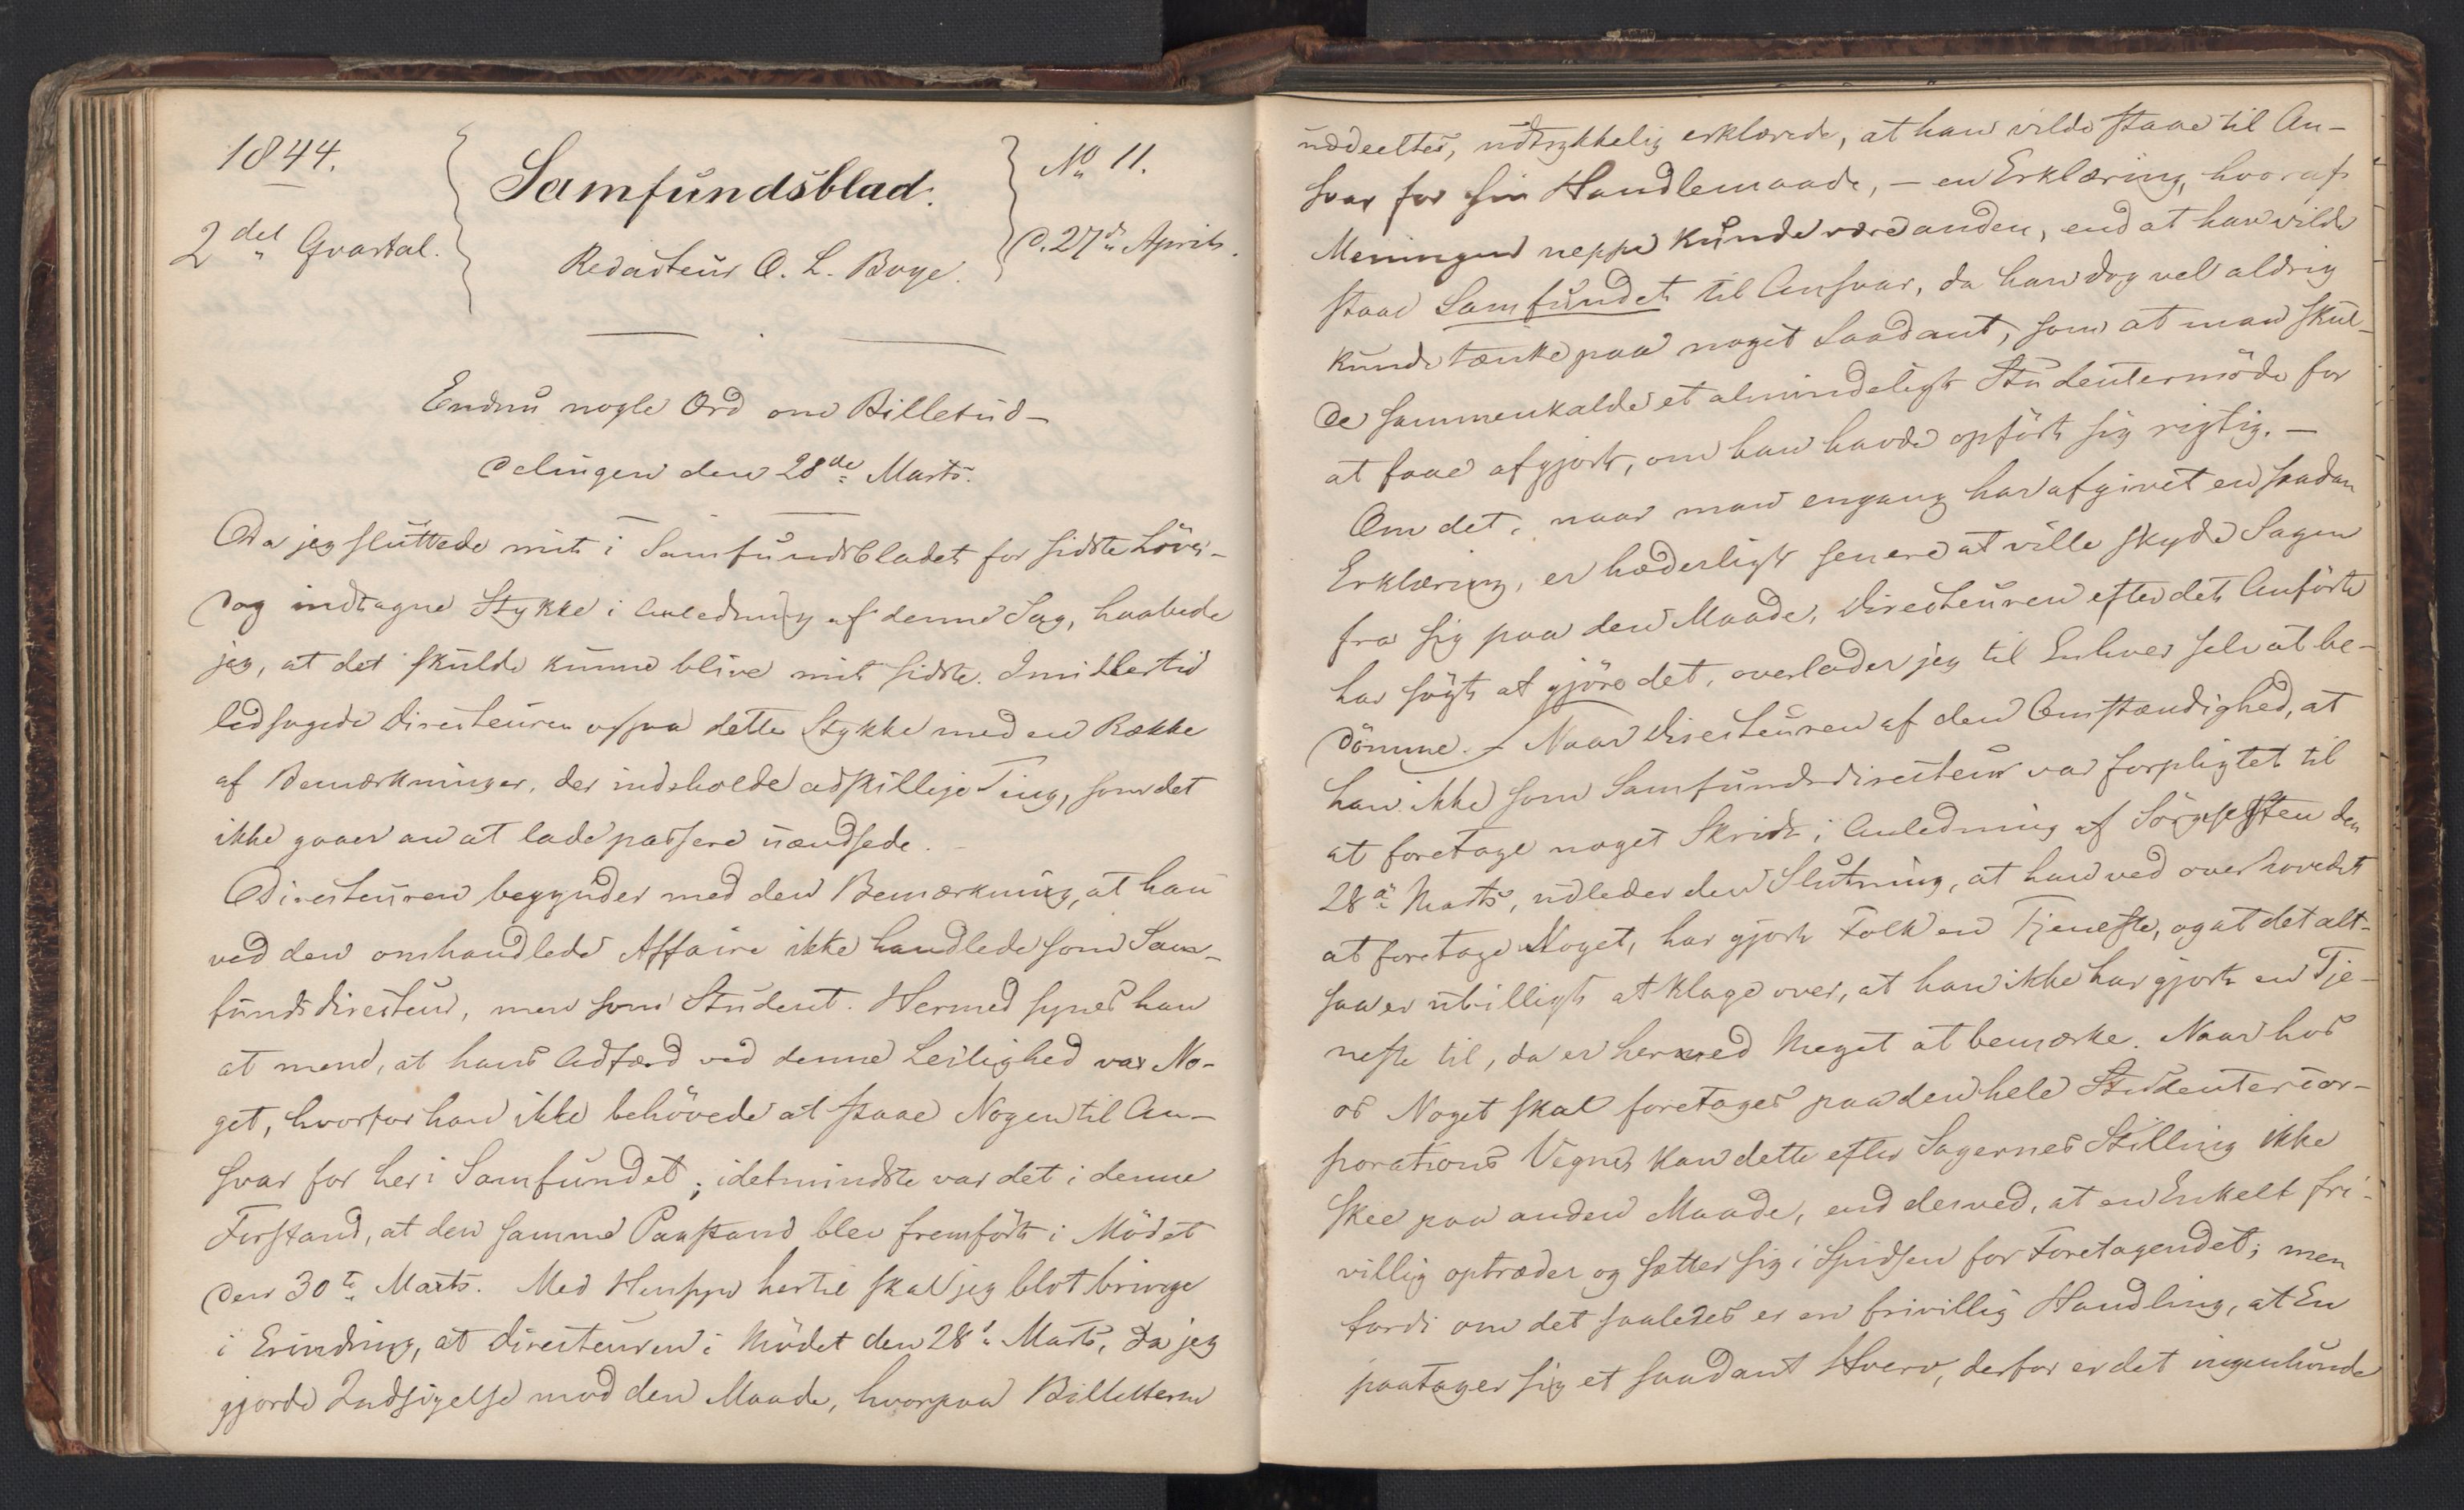 1844.
2det Qvartal.
Samfundsblad.
Redacteur O. L. Boye.
No 11.
d. 27de April.
Endnu nogle Ord om Billetud-
delingen den 28de Marts.
Da jeg sluttede mit i Samfundsbladet for sidste Löver-
dag indtagne Stykke i Anledning af denne Sag, haabede
jeg, at det skulde kunne blive mit sidste. Imidlertid
ledsagede Directeuren ogsaa dette Stykke med en Række
af Bemærkninger, der indeholde adskillige Ting, som det
ikke gaaer an at lade passere uændsede.
Directeuren begynder med den Bemærkning, at han
ved den omhandlede Affaire ikke handlede som Sam-
fundsdirecteur, men som Student. Hermed synes han
at mene, at hans Adfærd ved denne Leilighed var No-
get, hvorfor han ikke behövede at staae Nogen til An-
svar for her i Samfundet; idetmindste var det i denne
Forstand, at den samme Paastand blev fremfört i Mödet
den 30te Marts. Med Hensyn hertil skal jeg blot bringe
i Erindring, at Directeuren i Mödet den 28de Marts, da jeg
gjorde Indsigelse mod den Maade, hvorpaa Billetterne
uddeeltes, udtrykkelig erklærede, at han vilde staae til An-
svar for sin Handlemaade, — en Erklæring, hvoraf
Meningen neppe kunde være anden, end at han vilde
staae Samfundet til Ansvar, da han dog vel aldrig
kunde tænke paa noget Saadant, som at man skul-
de sammenkalde et almindeligt Studentermöde for
at faae afgjort, om han havde opfört sig rigtig. —
Om det, naar man engang har afgivet en saadan
Erklæring, er hæderligt senere at ville skyde Sagen
fra sig paa den Maade, Directeuren efter det Anförte
har sögt at gjöre det, overlader jeg til Enhver selv at be-
dömme. — Naar Directeuren af den Omstændighed, at
han ikke som Samfundsdirecteur var forpligtet til
at foretage noget Skridt i Anledning af Sörgefesten den
28de Marts, udleder den Slutning, at han ved overhovedet
at foretage Noget, har gjort Folk en Tjeneste, og at det alt-
saa er ubilligt at klage over, at han ikke har gjort en Tje-
neste til, da er hermed Meget at bemærke. Naar hos
os Noget skal foretages paa den hele Studentercor-
porations Vegne, kan dette efter Sagernes Stilling ikke
skee paa anden Maade, end derved, at en Enkelt fri-
villig optræder og sætter sig i Spidsen for Foretagendet; men
fordi om det saaledes er en frivillig Handling, at En
paatager sig et saadant Hverv, derfor er det ingenlunde